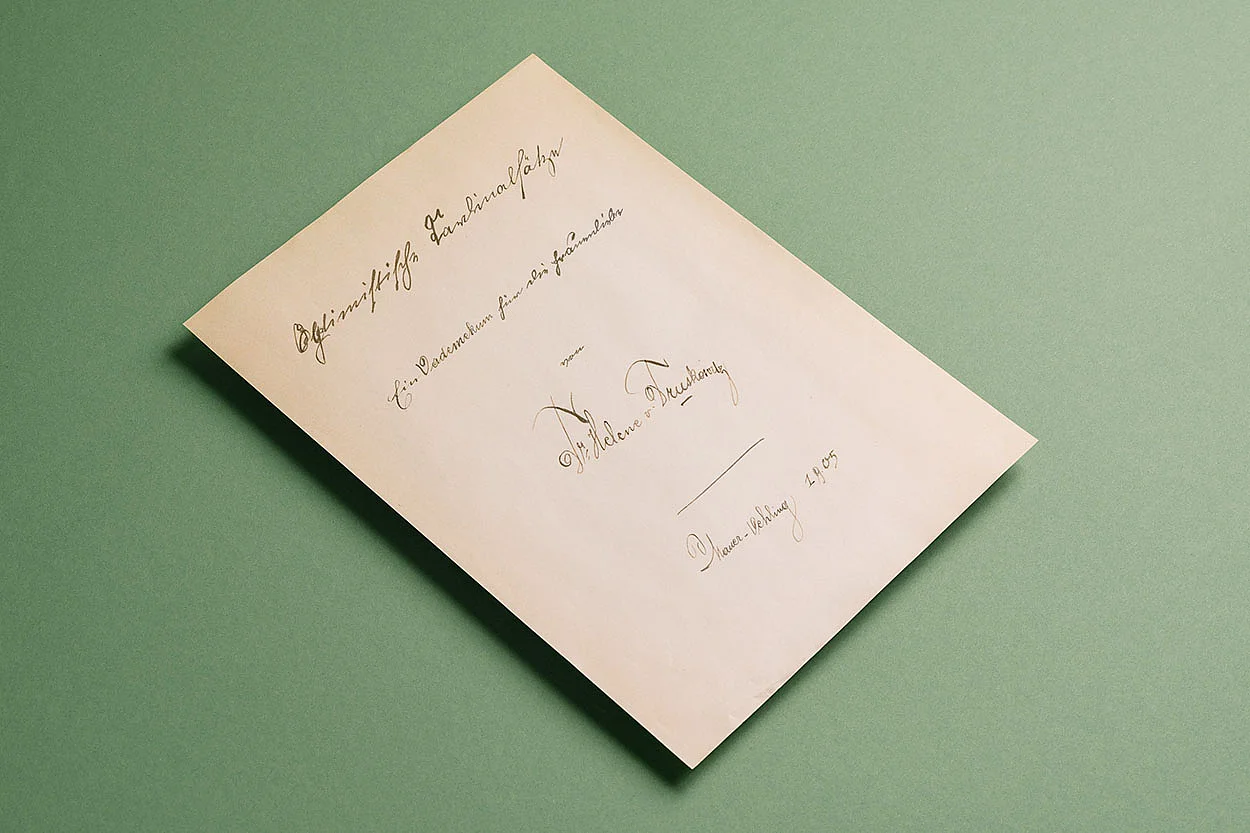 Optimistische Kardinalsätze
Ein Vademekum für die Frauenliebe
von
Dr. Helene v. Druskowitz
Mauer-Oehling 1905